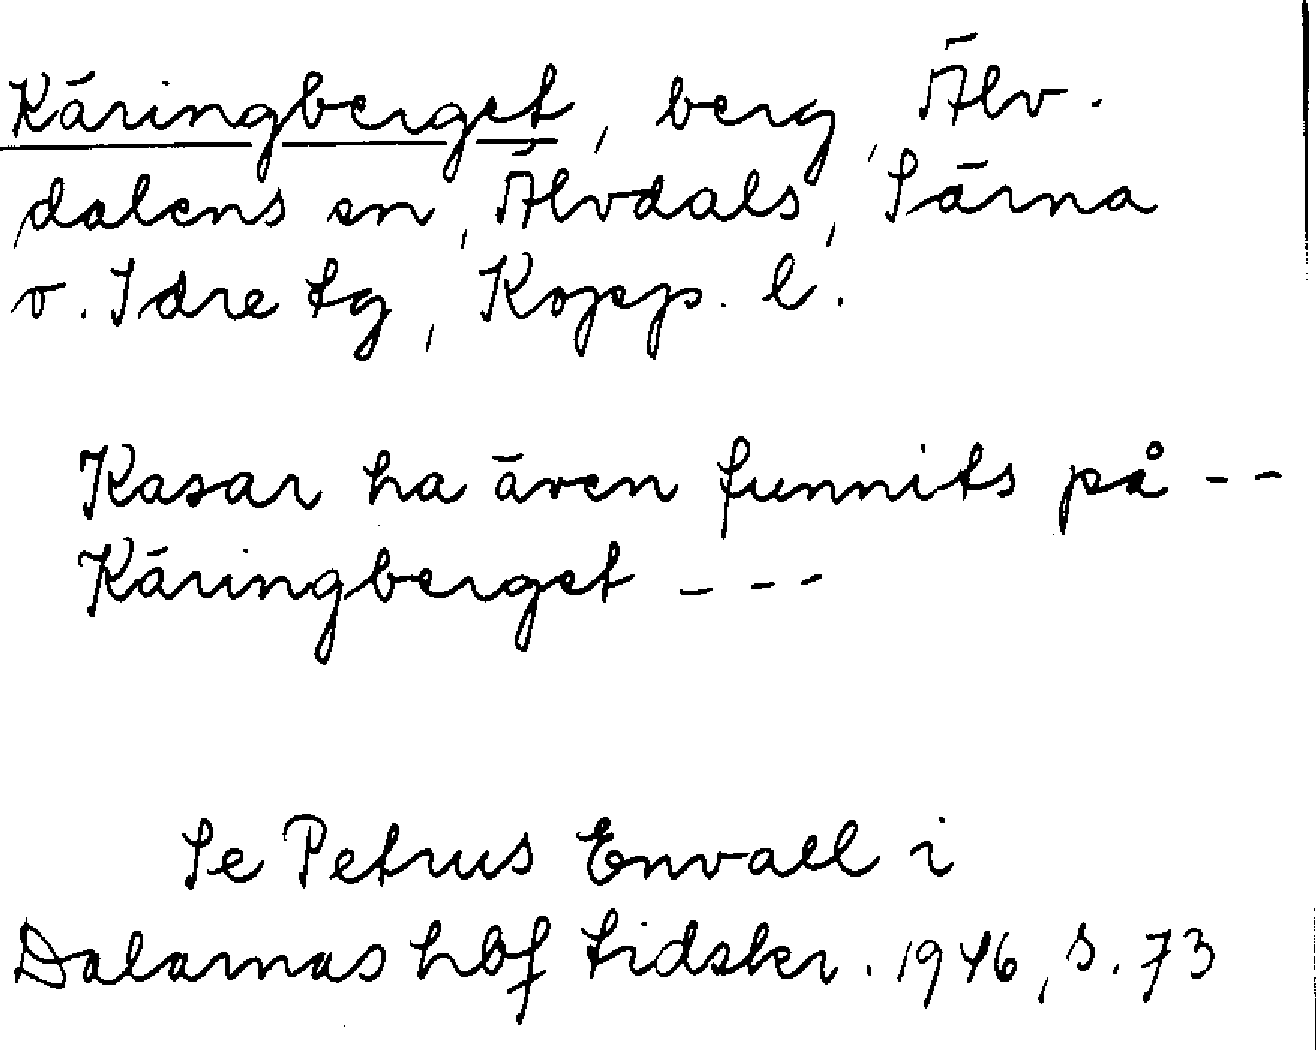 Käringberget, berg, Älv.
dalens sn, Älvdals, Särna
o. Idre tg, Kopp. l.
Kasar ha även funnits på - -
Käringberget - - -
Se Petrus Envall i
Dalarnas hbf tidskr. 1946, s. 73